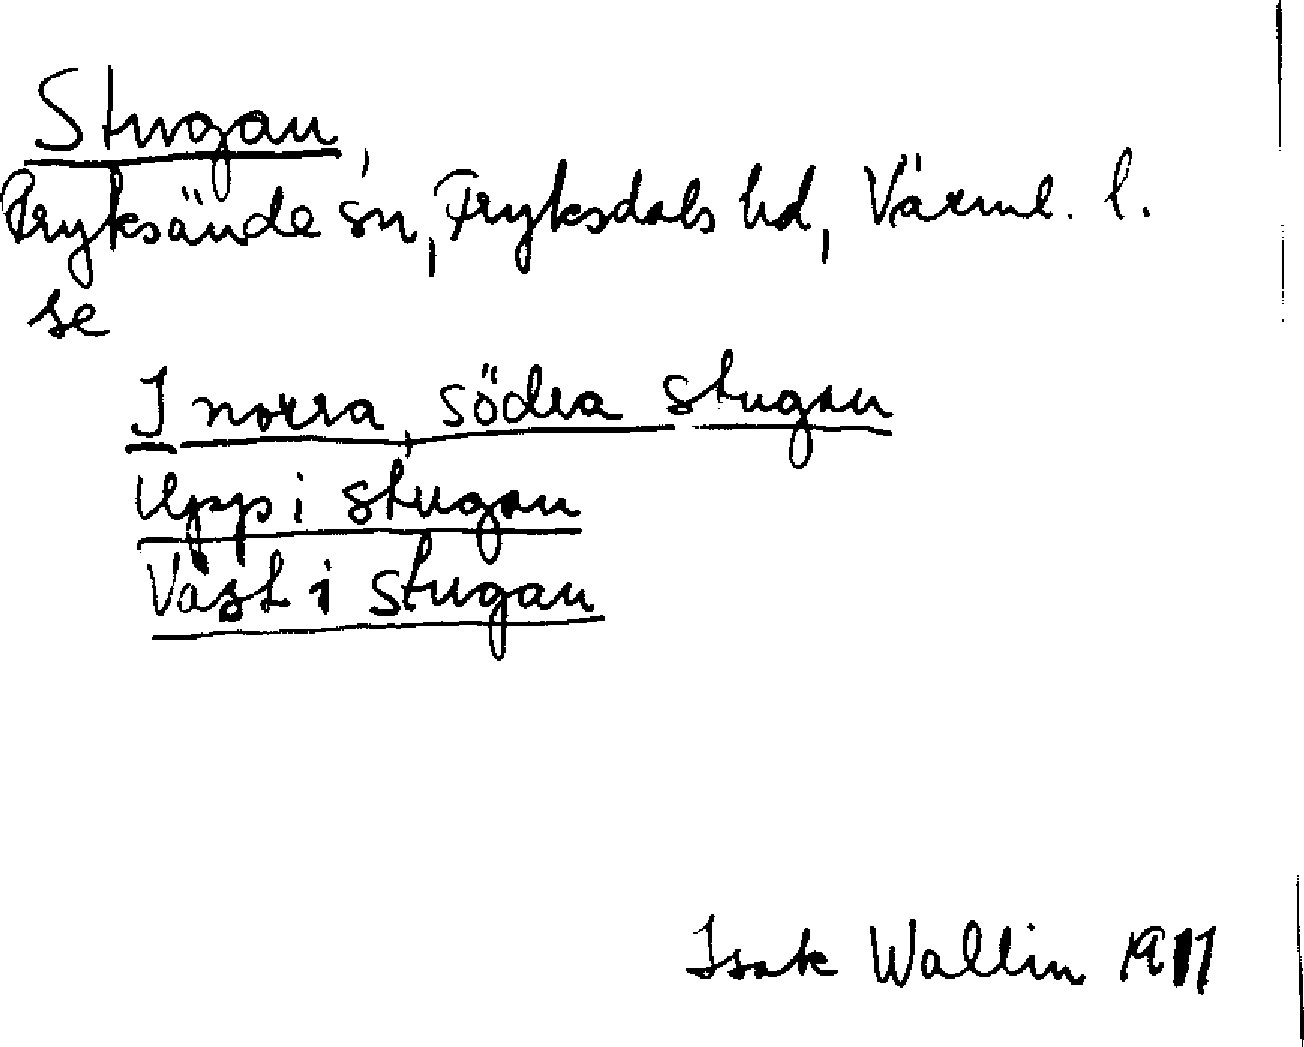 Stugan
Fryksände sn, Fryksdals hd, Värml. l.
se
I norra, södra stugan
Upp i stugan
Väst i stugan
Isak Wallin 1911